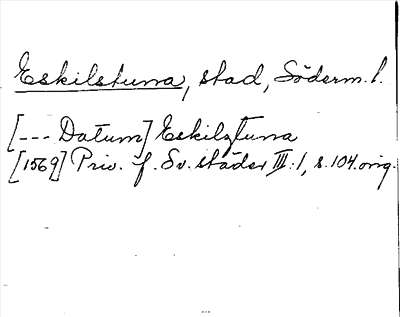 Eskilstuna, stad, Söderm. l.
[--- Datum] Eskilztuna
[1569] Priv. f. Sv. städer III:1, s. 104. orig.